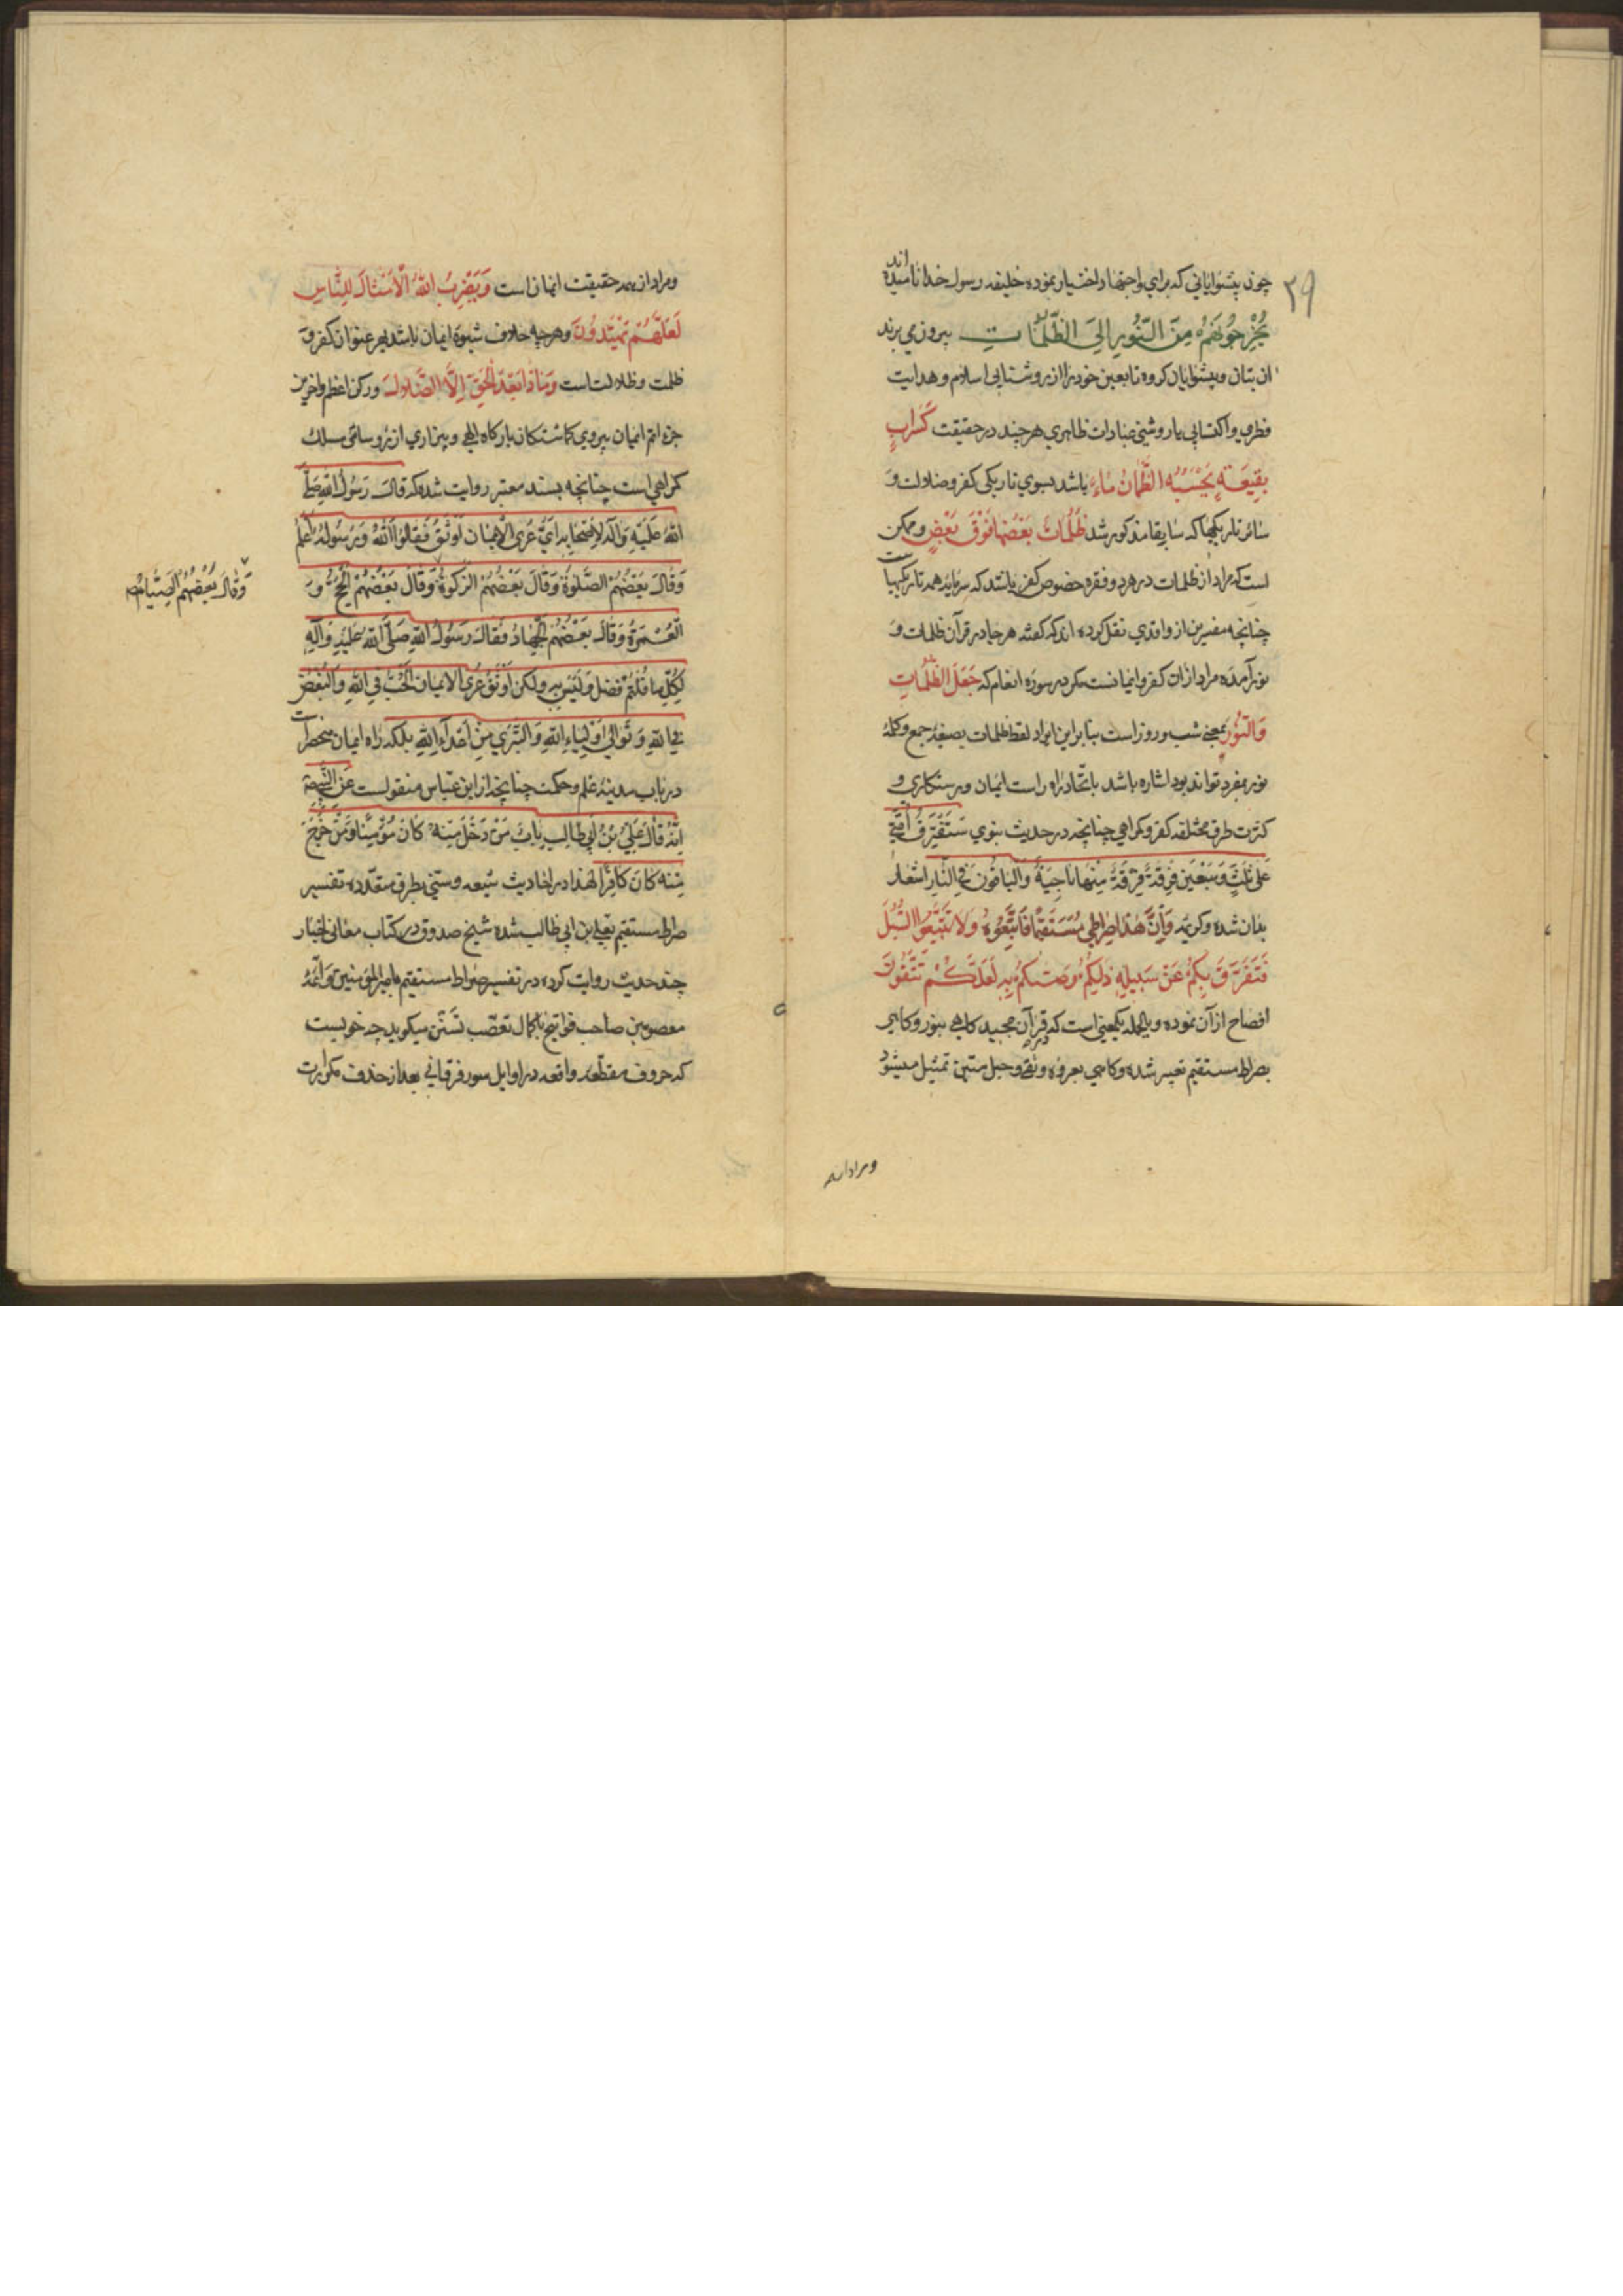 ۳۹
چون پیشوایانی که برای و اجتهاد اختیار نموده خلیفه رسول خدا نامیده‌اند
يُخْرِجُونَهُمْ مِنَ النُّورِ اِلَى الظُّلُمَاتِ بیرون می برند
ان بتان و پیشوایان کروه تابعین خود را از روشنایی اسلام و هدایت
فطری و اکتسابی یا روشنی عبادات ظاهری هر چند در حقیقت كَسَرَابٍ
بِقِيعَةٍ يَحْسَبُهُ الظَّمْآنُ مَاءً باشد بسوی تاریکی کفر و ضلالت و
سائر تاریکیها که سابقا مذکور شد ظُلُمَاتٌ بَعْضُهَا فَوْقَ بَعْضٍ و ممکن
است که مراد از ظلمات در هر دو فقره خصوص کفر باشد که سرمایه همه تاریکیهاست
چنانچه مفسرین از واقدی نقل کرده اند که گفته هر جا در قرآن ظلمات و
نور آمده مراد ازان کفر و ایمانست مکر در سوره انعام که جَعَلَ الظُّلُمَاتِ
وَالنُّورَ بمعنی شب و روز است بنا براین ایراد لفظ ظلمات بصیغهٔ جمع و کلمهٔ
نور بمفرد تواند بود اشاره باشد باتّحاد راه راست ایمان و رستکاری و
کثرت طرق مختلفه کفر و کمراهی چنانچه در حدیث نبوی سَتَفْتَرِقُ أُمَّتِي
عَلَى ثَلَثٍ وَسَبْعِينَ فِرْقَةً فِرْقَةٌ مِنْهَا نَاجِيَةٌ وَالْبَاقُونَ فِي النَّارِ اشعار
بدان شده و کریمه وَأَنَّ هٰذَا صِرَاطِي مُسْتَقِيمًا فَاتَّبِعُوهُ وَلَا تَتَّبِعُوا السُّبُلَ
فَتَفَرَّقَ بِكُمْ عَنْ سَبِيلِهِ ذٰلِكُمْ وَصّٰىكُمْ بِهِ لَعَلَّكُمْ تَتَّقُونَ
افصاح از آن نموده و بالجمله یکمعنی است که در قرآن مجید کاهی بنور و کاهی
بصراط مستقیم تعبیر شده و کاهی بعروه وثقی و حبل متین تمثیل میشود
و مراد از همه
و مراد از همه حقیقت ایمان است وَيَضْرِبُ اللّٰهُ الْأَمْثَالَ لِلنَّاسِ
لَعَلَّهُمْ يَهْتَدُونَ و هر چه خلاف شیوه ایمان باشد بهر عنوان کفر و
ظلمت و ضلالت است وَمَاذَا بَعْدَ الْحَقِّ اِلَّا الضَّلَالَ و رکن اعظم و اخرین
جزء اتم ایمان پیروی کماشتکان بارکاه الهی و بیزاری از رؤسای مسلک
کمراهی است چنانچه بسند معتبر روایت شده که قَالَ رَسُولُ اللّٰهِ صَلَّى
اللّٰهُ عَلَيْهِ وَآلِهِ لِأَصْحَابِهِ أَيُّ عُرَى الْإِيمَانِ أَوْثَقُ فَقَالُوا اَللّٰهُ وَرَسُولُهُ أَعْلَمُ
وَقَالَ بَعْضُهُمْ الصَّلٰوةُ وَقَالَ بَعْضُهُمْ الزَّكٰوةُ وَقَالَ بَعْضُهُمْ الْحَجُّ وَ
وَقَالَ بَعْضُهُمْ الصِّيَامُ
الْعُمْرَةُ وَقَالَ بَعْضُهُمْ الْجِهَادُ فَقَالَ رَسُولُ اللّٰهِ صَلَّى اللّٰهُ عَلَيْهِ وَآلِهِ
لِكُلِّ مَا قُلْتُمْ فَضْلٌ وَلَيْسَ بِهِ وَلٰكِنْ أَوْثَقُ عُرَى الْإِيمَانِ الْحُبُّ فِي اللّٰهِ وَالْبُغْضُ
فِي اللّٰهِ وَتَوَالِي أَوْلِيَاءِ اللّٰهِ وَالتَّبَرِّي مِنْ أَعْدَاءِ اللّٰهِ بلکه راه ایمان منحصر است
در باب مدینهٔ علم و حکمت چنانچه از ابن عباس منقولست عَنِ النَّبِيِّ
اَنَّهُ قَالَ عَلِيُّ بْنُ أَبِي طَالِبٍ بَابٌ مَنْ دَخَلَ مِنْهُ كَانَ مُؤْمِنًا وَمَنْ خَرَجَ
مِنْهُ كَانَ كَافِرًا لهذا در احادیث شیعه و سنی بطرق متعدده تفسیر
صراط مستقیم بعلی بن ابی طالب شده شیخ صدوق در کتاب معانی الاخبار
چند حدیث روایت کرده در تفسیر صراط مستقیم بامیر المؤمنین و ائمهٔ
معصومین صاحب فواتح باکمال تعصّب تسنّن میکوید چه خوبست
که حروف مقطعه واقعه در اوایل سور فرقانی بعد از حذف مکررات